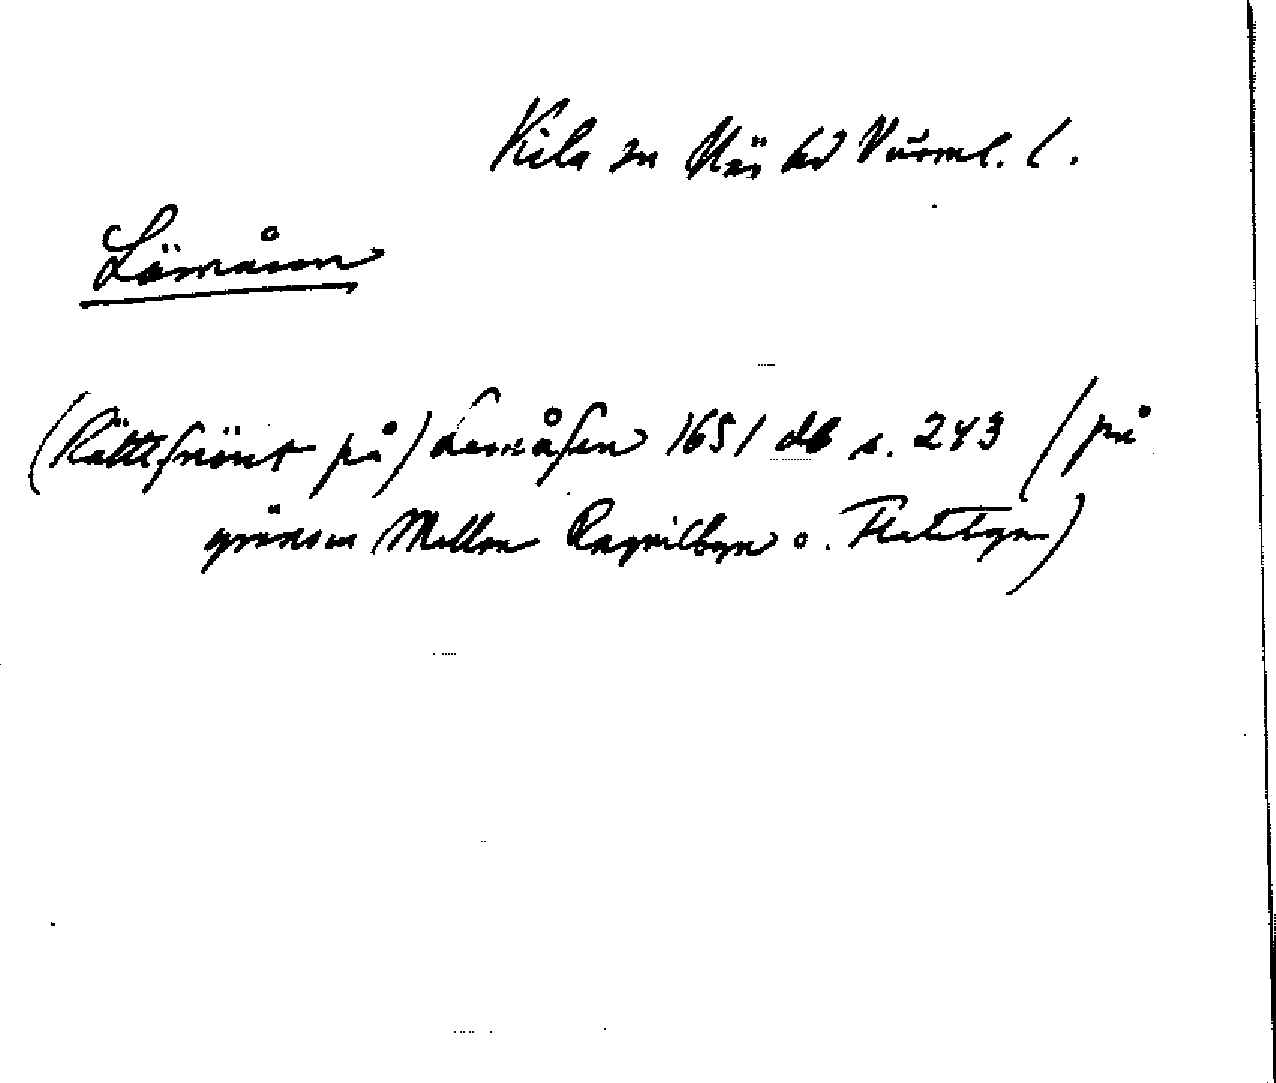 Kila sn Näs hd Värml. l.
Lömåsen
(Rättesnöret på) Lemåsen 1651 db s. 243 (på
gränsen Mellan Ragvilbyn o. Flatebyn)